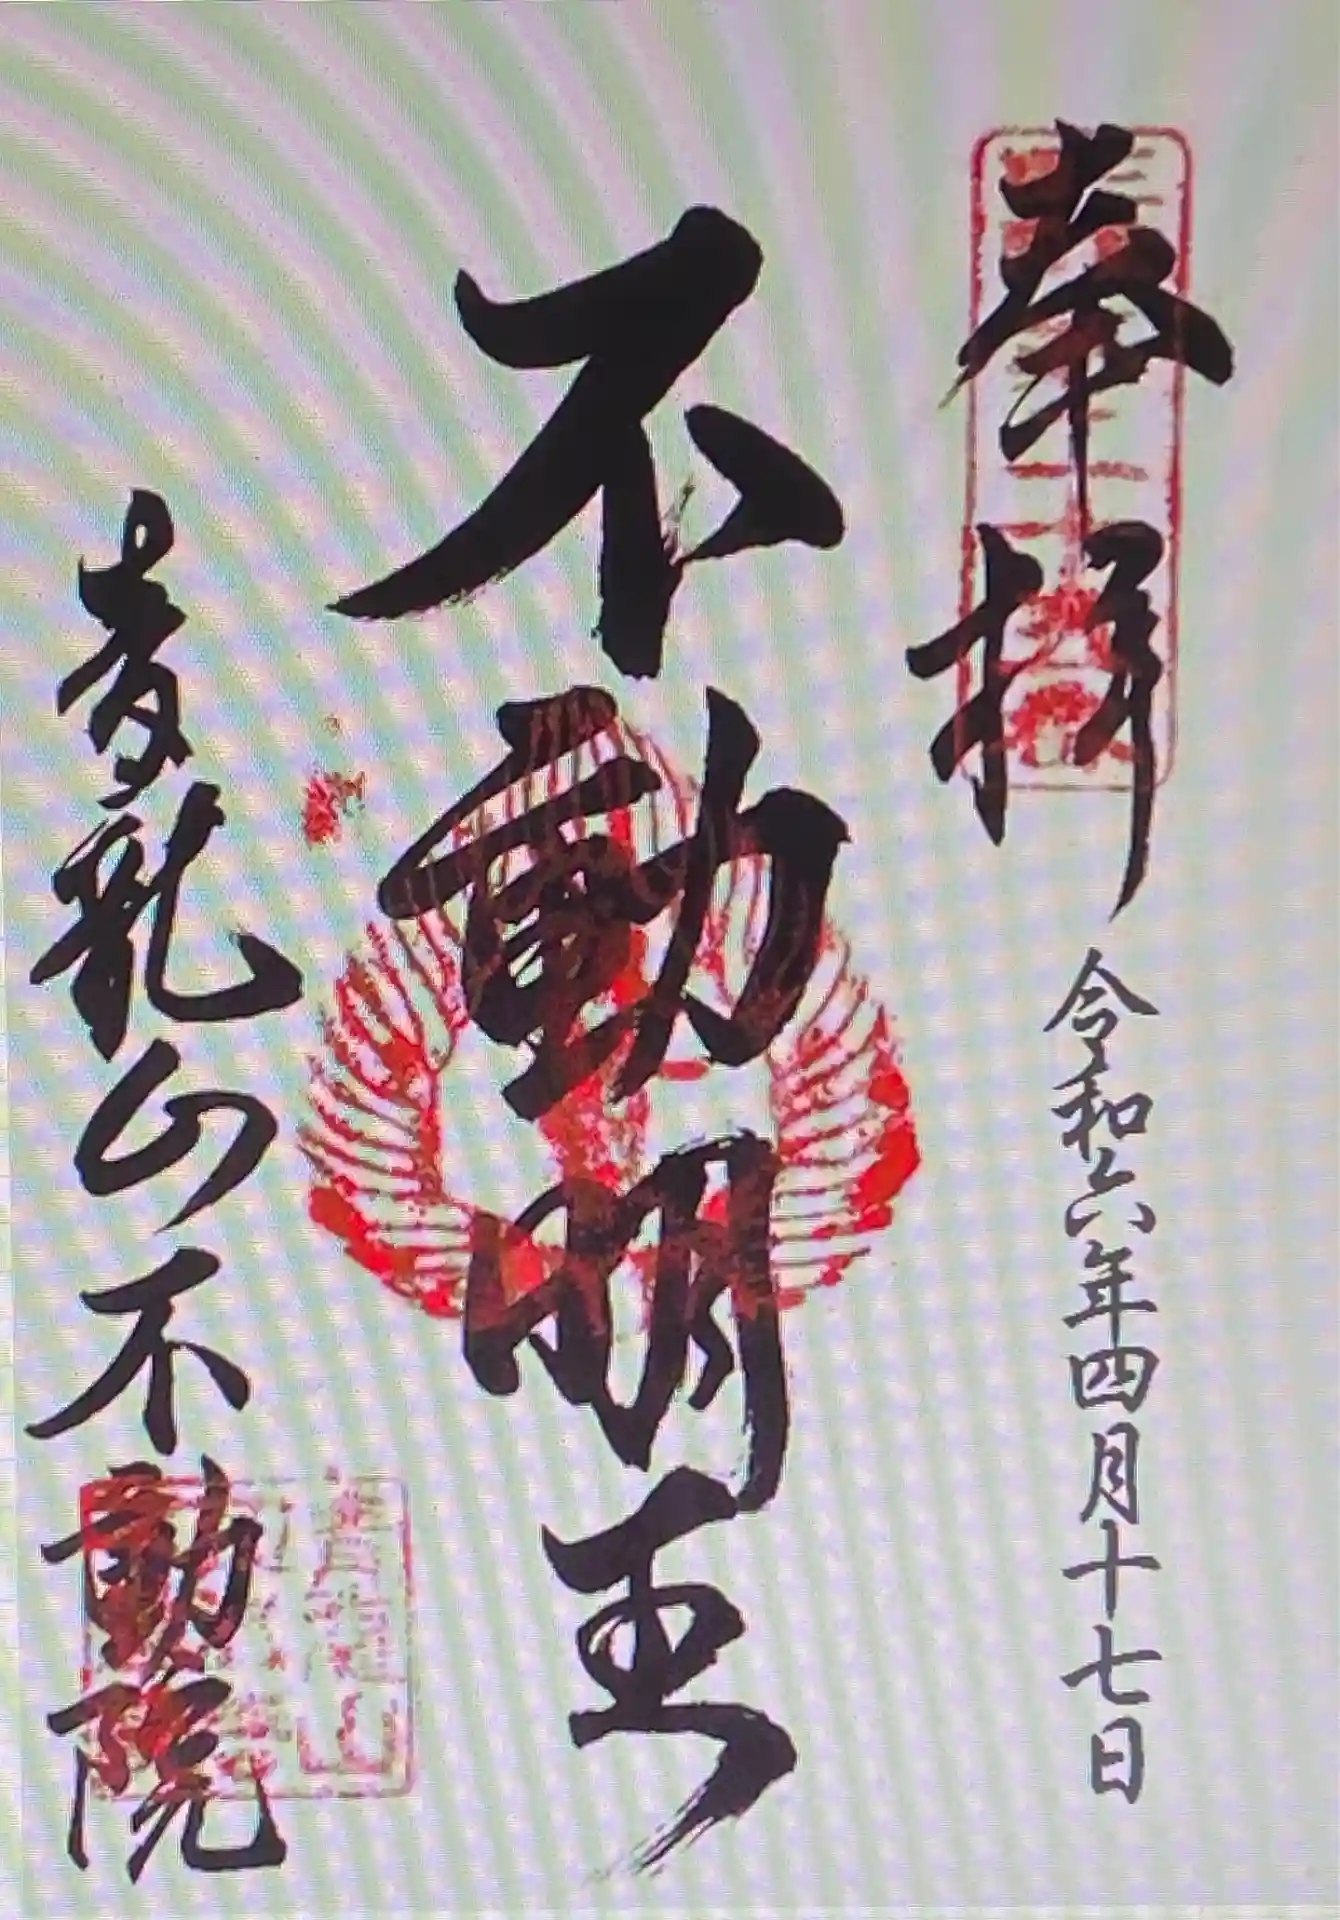 奉拝
令和六年四月十七日
不動明王
青龍山不動院
青龍山